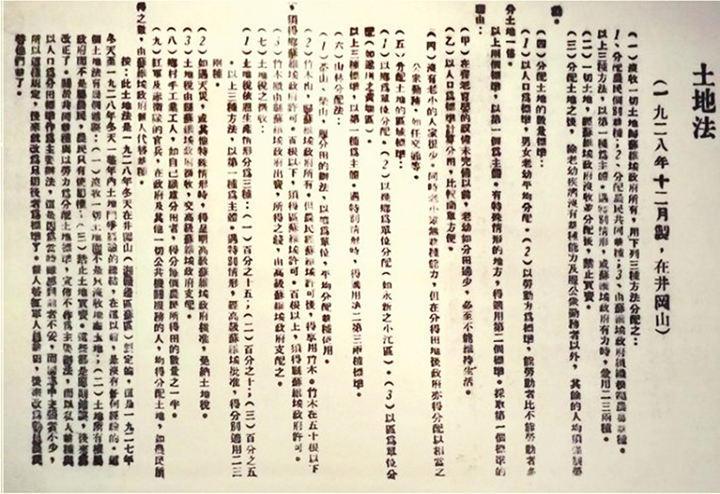 土地法
(一九二八年十二月製,在井岡山)
(一)沒收一切土地歸蘇維埃政府所有,用下列三種方法分配之:
1、分配農民個別耕種;2、分配農民共同耕種;3、由蘇維埃政府組織模範農場耕種。
以上三種方法,以第一種爲主體。遇特別情形,或蘇維埃政府有力時,兼用二三兩種。
(二)一切土地,經蘇維埃政府沒收並分配後,禁止買賣。
(三)分配土地之後,除老幼疾病沒有耕種能力及服公衆勤務者以外,其餘的人均須強制勞
動。
(四)分配土地的數量標準:
(1)以人口爲標準,男女老幼平均分配。(2)以勞動力爲標準,能勞動者比不能勞動者多
分土地一倍。
以上兩個標準,以第一個爲主體。有特殊情形的地方,得適用第二個標準。採取第一個標準的
理由:
(甲)在養老育嬰的設備未完備以前,老幼如分田過少,必至不能維持生活。
(乙)以人口爲標準計算分田,比較簡單方便。
(四)沒有老小的人家很少。同時老小雖無耕種能力,但在分得田地後政府亦得分配以相當之
公衆勤務,如任交通等。
(五)分配土地的區域標準:
(1)以鄉爲單位分配。(2)以幾鄉爲單位分配(如永新之小江區)。(3)以區爲單位分
配(如遂川之黃坳區)。
以上三種標準,以第一種爲主體。遇特別情形時,得適用第二第三兩種標準。
(六)山林分配法:
(1)茶山、柴山,照分田的辦法,以鄉爲單位,平均分配耕種使用。
(2)竹木山,歸蘇維埃政府所有。但農民經蘇維埃政府許可後,得享用竹木。竹木在五十根以下
,須得鄉蘇維埃政府許可。百根以下,須得區蘇維埃政府許可。百根以上,須得縣蘇維埃政府許可。
(3)竹木概由縣蘇維埃政府出賣,所得之錢,由高級蘇維埃政府支配之。
(七)土地稅之徵收:
(1)土地稅依照生產情形分爲三種:(一)百分之十五;(二)百分之十;(三)百分之五
。以上三種方法,以第一種爲主體。遇特別情形,經高級蘇維埃政府批准,得分別適用二三
兩種。
(2)如遇天災,或其他特殊情形時,得呈明高級蘇維埃政府核准,免納土地稅。
(3)土地稅由縣蘇維埃政府徵收,交高級蘇維埃政府支配。
(八)鄉村手工業工人,如自己願意分田者,得分每個農民所得田的數量之一半。
(九)紅軍及赤衛隊的官兵,在政府及其他一切公共機關服務的人,均得分配土地,如農民所
得之數,由蘇維埃政府僱人代替耕種。
按:此土地法是一九二八年冬天在井岡山(湘贛邊界蘇區)制定的,這是一九二七年
冬天至一九二八年冬天一整年內土地鬥爭經驗的總結,在這以前,是沒有任何經驗的。這
個土地法有幾個錯誤:(一)沒收一切土地而不是只沒收地主土地;(二)土地所有權屬
政府而不是屬農民,農民只有使用權;(三)禁止土地買賣。這些都是原則錯誤,後來都
改正了。關於共同耕種與以勞力爲分配土地標準,宣布不作爲主要辦法,而以私人耕種與
以人口爲分田標準作爲主要辦法,這是因爲當時雖感到前者不妥,而同志中主張者不少,
所以這樣規定,後來就改爲只用後者爲標準了。僱人替紅軍人員耕田,後來改爲動員農民
替他們耕了。